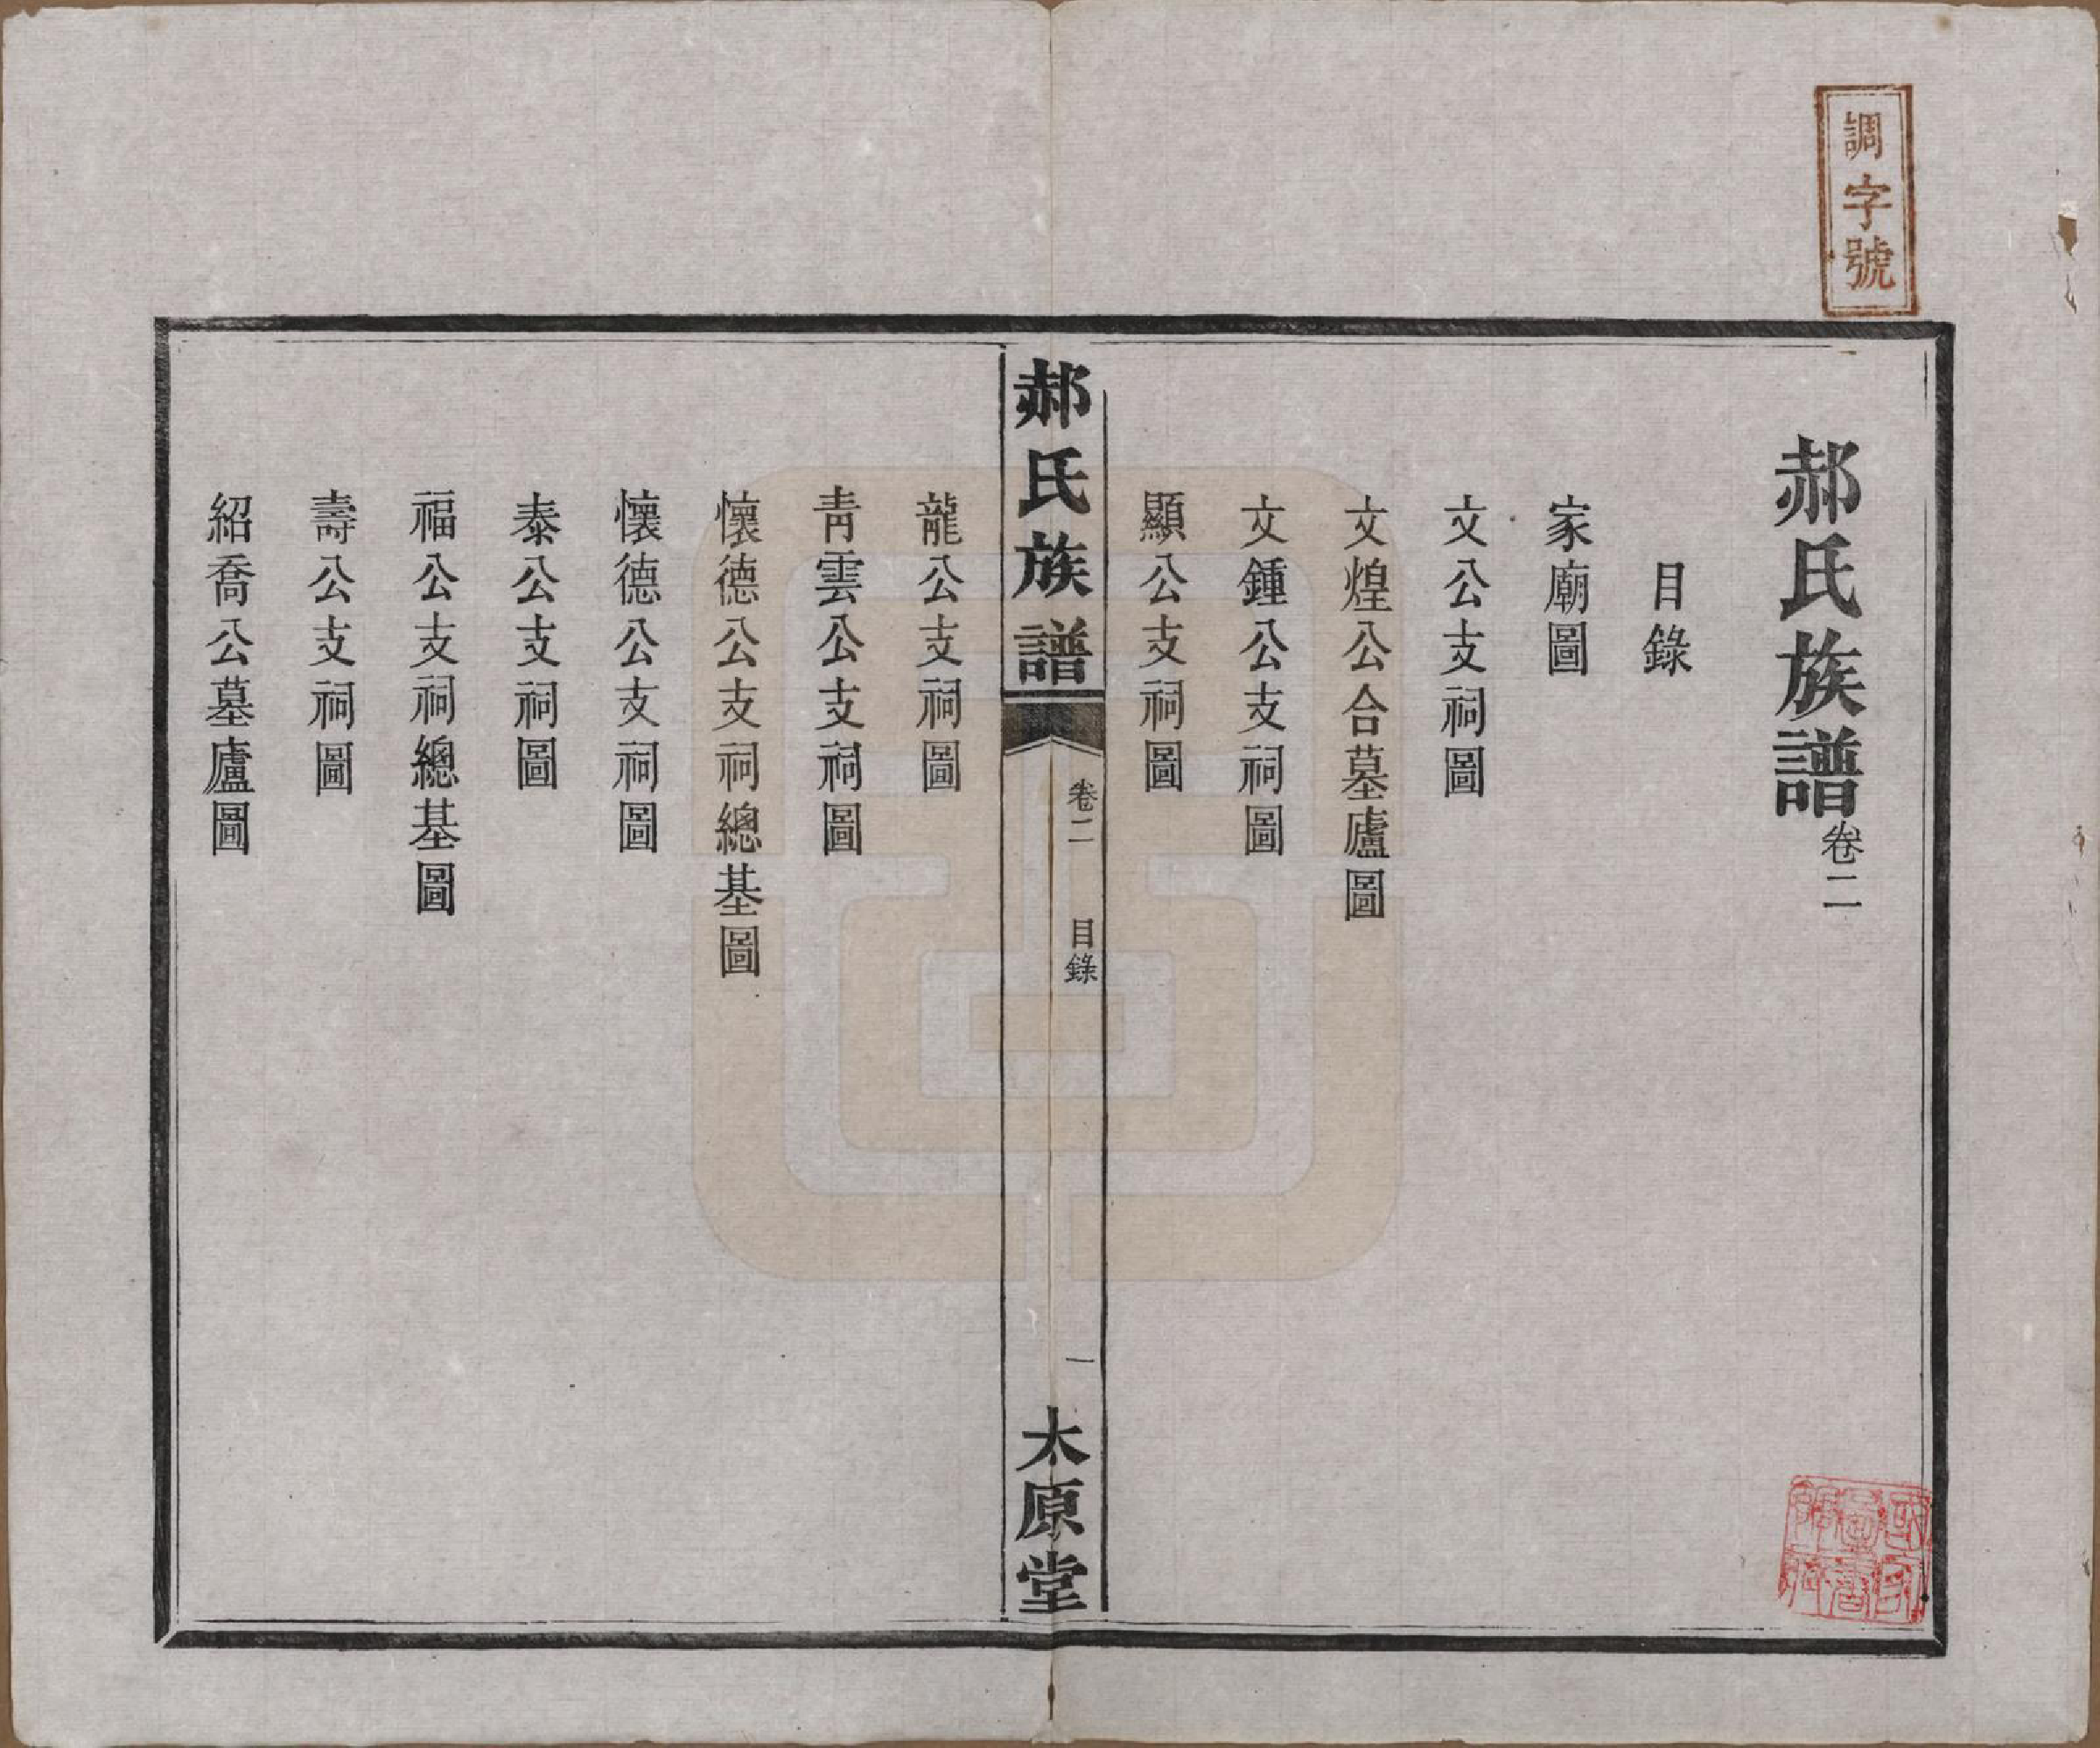 調字號
郝氏族譜卷二
目錄
家廟圖
文公支祠圖
文煌公合墓廬圖
文鍾公支祠圖
顯公支祠圖
郝氏族譜
卷二
目錄
一
太原堂
龍公支祠圖
青雲公支祠圖
懷德公支祠總基圖
懷德公支祠圖
泰公支祠圖
福公支祠總基圖
壽公支祠圖
紹喬公墓廬圖